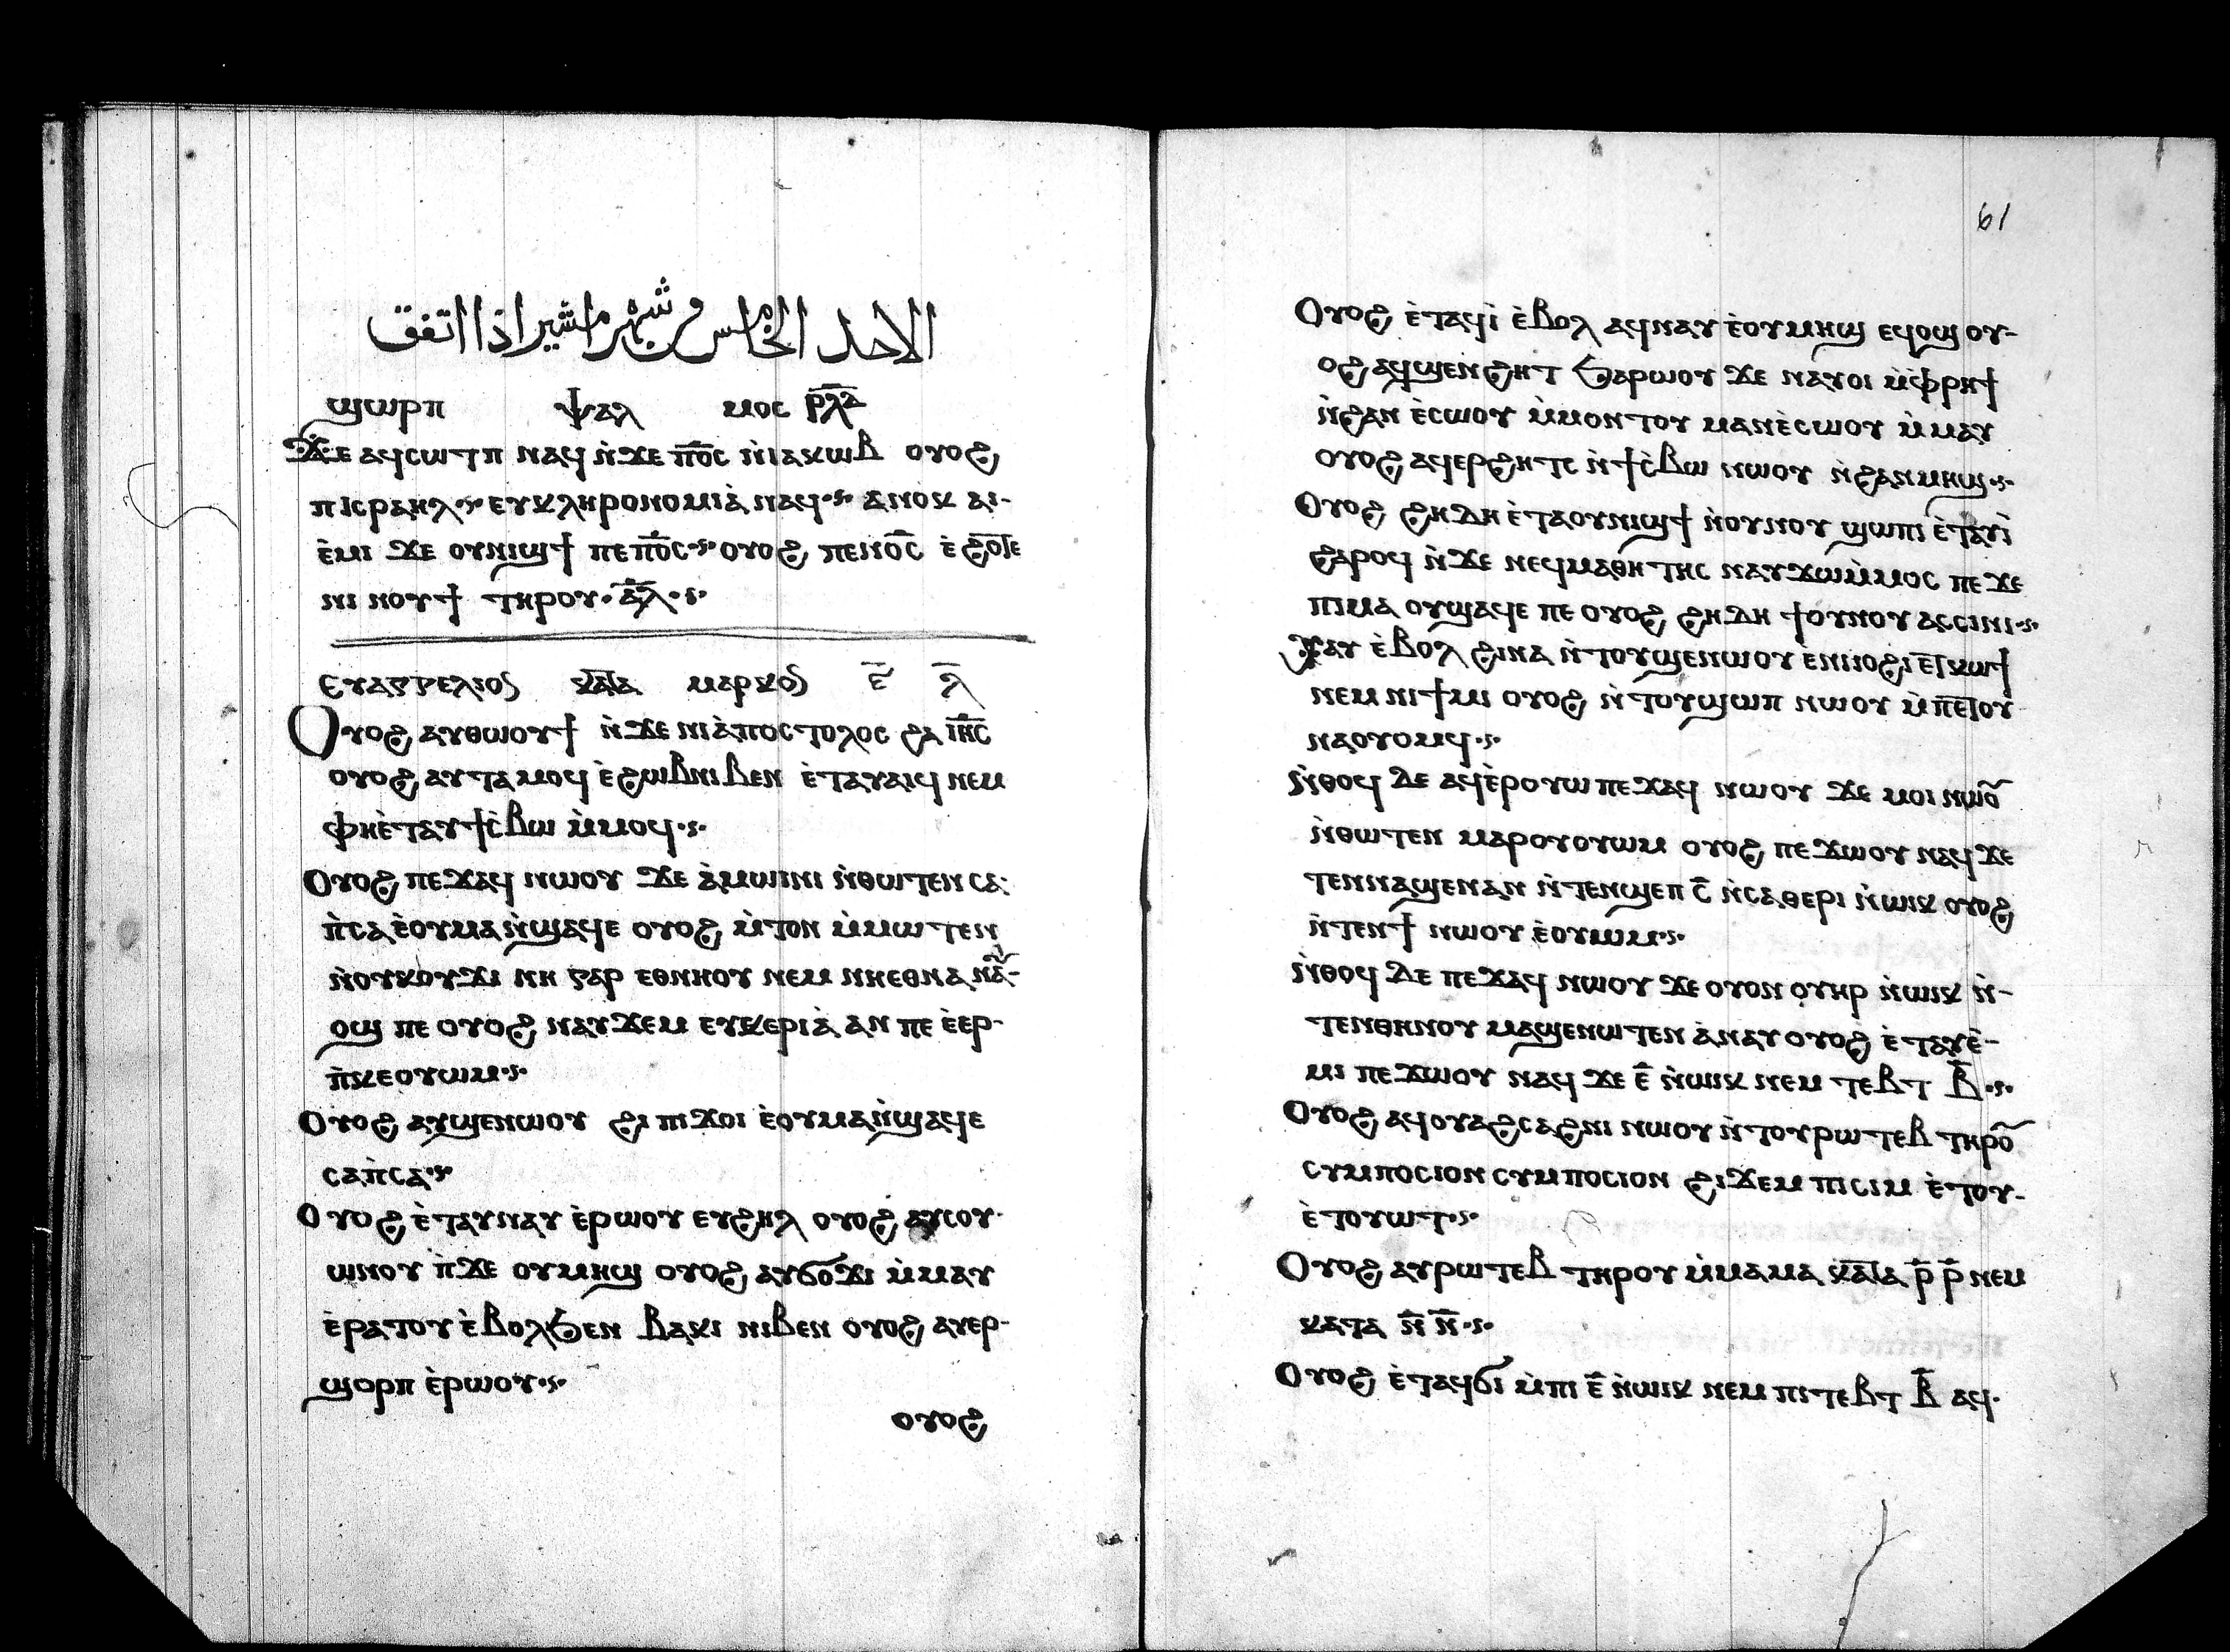 الاحد الخامس من شهر امشير اذا اتفق
ϣⲱⲣⲡ ⲯⲁⲗ ⲙⲟⲥ ⲣ̅ⲗ̅ⲇ̅
ϫⲉ ⲁϥⲥⲱⲧⲡ ⲛⲁϥ ⲛ̀ϫⲉ ⲡⲟ̅ⲥ̅ ⲛ̀ⲓⲁⲕⲱⲃ ⲟⲩⲟϩ
ⲡⲓⲥⲣⲁⲏⲗ ⲉⲩⲕⲗⲏⲣⲟⲛⲟⲙⲓⲁ̀ ⲛⲁϥ ⲁⲛⲟⲕ ⲁⲓ-
ⲉ̀ⲙⲓ ϫⲉ ⲟⲩⲛⲓϣϯ ⲡⲉ ⲡⲟ̅ⲥ̅ ⲟⲩⲟϩ ⲡⲉⲛⲟ̅ⲥ̅ ⲉ̀ϩⲟⲧⲉ
ⲛⲓ ⲛⲟⲩϯ ⲧⲏⲣⲟⲩ ⲁ̅ⲗ̅
ⲉⲩⲁⲅⲅⲉⲗⲓⲟⲥ ⲕⲁⲧⲁ ⲙⲁⲣⲕⲟⲥ ⲉ̅ ⲗ̅
Ⲟⲩⲟϩ ⲁⲩⲑⲱⲟⲩϯ ⲛ̀ϫⲉ ⲛⲓⲁ̀ⲡⲟⲥⲧⲟⲗⲟⲥ ϩⲁ ⲓⲏ̅ⲥ̅
ⲟⲩⲟϩ ⲁⲩⲧⲁⲙⲟϥ ⲉ̀ϩⲱⲃ ⲛⲓⲃⲉⲛ ⲉ̀ⲧⲁⲩⲁⲓϥ ⲛⲉⲙ
ⲫⲏⲉ̀ⲧⲁⲩϯⲥ̀ⲃⲱ ⲙ̀ⲙⲟϥ
Ⲟⲩⲟϩ ⲡⲉϫⲁϥ ⲛⲱⲟⲩ ϫⲉ ⲁ̀ⲙⲱⲓⲛⲓ ⲛ̀ⲑⲱⲧⲉⲛ ⲥⲁ
ⲡ̀ⲥⲁ ⲉ̀ⲟⲩⲙⲁ ⲛ̀ϣⲁϥⲉ ⲟⲩⲟϩ ⲙ̀ⲧⲟⲛ ⲙ̀ⲙⲱⲧⲉⲛ
ⲛ̀ⲟⲩⲕⲟⲩϫⲓ ⲛⲏ ⲅⲁⲣ ⲉⲑⲛⲏⲟⲩ ⲛⲉⲙ ⲛⲏⲉⲑⲛⲁ ⲛⲁⲩ-
ⲟϣ ⲡⲉ ⲟⲩⲟϩ ⲛⲁⲩϫⲉⲙ ⲉⲩⲕⲉⲣⲓⲁ̀ ⲁⲛ ⲡⲉ ⲉ̀ⲉⲣ-
ⲡ̀ⲕⲉⲟⲩⲱⲙ
Ⲟⲩⲟϩ ⲁⲩϣⲉⲛⲱⲟⲩ ϩⲓ ⲡⲓϫⲟⲓ ⲉ̀ⲟⲩⲙⲁ ⲛ̀ϣⲁϥⲉ
ⲥⲁⲡ̀ⲥⲁ
Ⲟⲩⲟϩ ⲉ̀ⲧⲁⲩⲛⲁⲩ ⲉ̀ⲣⲱⲟⲩ ⲉⲩϩⲏⲗ ⲟⲩⲟϩ ⲁⲩⲥⲟⲩ-
ⲱⲛⲟⲩ ⲛ̀ϫⲉ ⲟⲩⲙⲏϣ ⲟⲩⲟϩ ⲁⲩϭⲟϫⲓ ⲙ̀ⲙⲁⲩ
ⲉ̀ⲣⲁⲧⲟⲩ ⲉ̀ⲃⲟⲗϧⲉⲛ ⲃⲁⲕⲓ ⲛⲓⲃⲉⲛ ⲟⲩⲟϩ ⲁⲩⲉⲣ-
ϣⲟⲣⲡ ⲉ̀ⲣⲱⲟⲩ
ⲟⲩⲟϩ
61
Ⲟⲩⲟϩ ⲉ̀ⲧⲁϥⲓ̀ ⲉ̀ⲃⲟⲗ ⲁϥⲛⲁⲩ ⲉ̀ⲟⲩⲙⲏϣ ⲉϥⲟϣ ⲟⲩ-
ⲟϩ ⲁϥϣⲉⲛϩⲏⲧ ϧⲁⲣⲱⲟⲩ ϫⲉ ⲛⲁⲩⲟⲓ ⲙ̀ⲫⲣⲏϯ
ⲛ̀ϩⲁⲛ ⲉ̀ⲥⲱⲟⲩ ⲙ̀ⲙⲟⲛⲧⲟⲩ ⲙⲁⲛⲉ̀ⲥⲱⲟⲩ ⲙ̀ⲙⲁⲩ
ⲟⲩⲟϩ ⲁϥⲉⲣϩⲏⲧⲥ ⲛ̀ϯⲥ̀ⲃⲱ ⲛⲱⲟⲩ ⲛ̀ϩⲁⲛⲙⲏϣ
Ⲟⲩⲟϩ ϩⲏⲇⲏ ⲉ̀ⲧⲁⲟⲩⲛⲓϣϯ ⲛ̀ⲟⲩⲛⲟⲩ ϣⲱⲡⲓ ⲉ̀ⲧⲁⲩⲓ̀
ϩⲁⲣⲟϥ ⲛ̀ϫⲉ ⲛⲉϥⲙⲁⲑⲏⲧⲏⲥ ⲛⲁⲩϫⲱⲙ̀ⲙⲟⲥ ⲡⲉ ϫⲉ
ⲡⲓⲙⲁ ⲟⲩϣⲁϥⲉ ⲡⲉ ⲟⲩⲟϩ ϩⲏⲇⲏ ϯⲟⲩⲛⲟⲩ ⲁⲥⲥⲓⲛⲓ
ⲭⲁⲩ ⲉ̀ⲃⲟⲗ ϩⲓⲛⲁ ⲛ̀ⲧⲟⲩϣⲉⲛⲱⲟⲩ ⲉ̀ⲛⲓⲟϩⲓ ⲉⲧⲕⲱϯ
ⲛⲉⲙ ⲛⲓϯⲙⲓ ⲟⲩⲟϩ ⲛ̀ⲧⲟⲩϣⲱⲡ ⲛⲱⲟⲩ ⲙ̀ⲡⲉⲧⲟⲩ
ⲛⲁⲟⲩⲟⲙϥ
ⲛ̀ⲑⲟϥ ⲇⲉ ⲁϥⲉ̀ⲣⲟⲩⲱ ⲡⲉϫⲁϥ ⲛⲱⲟⲩ ϫⲉ ⲙⲟⲓ ⲛⲱⲟⲩ
ⲛ̀ⲑⲱⲧⲉⲛ ⲙⲁⲣⲟⲩⲟⲩⲱⲙ ⲟⲩⲟϩ ⲡⲉϫⲱⲟⲩ ⲛⲁϥ ϫⲉ
ⲧⲉⲛⲛⲁϣⲉⲛⲁⲛ ⲛ̀ⲧⲉⲛϣⲉⲡ ⲥ̅ ⲛ̀ⲥⲁⲑⲉⲣⲓ ⲛ̀ⲱⲓⲕ ⲟⲩⲟϩ
ⲛ̀ⲧⲉⲛϯ ⲛⲱⲟⲩ ⲉ̀ⲟⲩⲱⲙ
ⲛ̀ⲑⲟϥ ⲇⲉ ⲡⲉϫⲁϥ ⲛⲱⲟⲩ ϫⲉ ⲟⲩⲟⲛ ⲟⲩⲏⲣ ⲛ̀ⲱⲓⲕ ⲛ̀-
ⲧⲉⲛⲑⲏⲛⲟⲩ ⲙⲁϣⲉⲛⲱⲧⲉⲛ ⲁ̀ⲛⲁⲩ ⲟⲩⲟϩ ⲉ̀ⲧⲁⲩⲉ̀-
ⲙⲓ ⲡⲉϫⲱⲟⲩ ⲛⲁϥ ϫⲉ ⲉ̅ ⲛ̀ⲱⲓⲕ ⲛⲉⲙ ⲧⲉⲃⲧ ⲃ̅
Ⲟⲩⲟϩ ⲁϥⲟⲩⲁϩⲥⲁϩⲛⲓ ⲛⲱⲟⲩ ⲛ̀ⲧⲟⲩⲣⲱⲧⲉⲃ ⲧⲏⲣⲟⲩ
ⲥⲩⲙⲡⲟⲥⲓⲟⲛ ⲥⲩⲙⲡⲟⲥⲓⲟⲛ ϩⲓϫⲉⲙ ⲡⲓⲥⲓⲙ ⲉ̀ⲧⲟⲩ-
ⲉ̀ⲧⲟⲩⲱⲧ
Ⲟⲩⲟϩ ⲁⲩⲣⲱⲧⲉⲃ ⲧⲏⲣⲟⲩ ⲙ̀ⲙⲁⲙⲁ ⲕⲁⲧⲁ ⲣ̅ ⲣ̅ ⲛⲉⲙ
ⲕⲁⲧⲁ ⲛ̅ ⲛ̅
Ⲟⲩⲟϩ ⲉ̀ⲧⲁϥϭⲓ ⲙ̀ⲡⲓ ⲉ̅ ⲛ̀ⲱⲓⲕ ⲛⲉⲙ ⲡⲓⲧⲉⲃⲧ ⲃ̅ ⲁϥ-